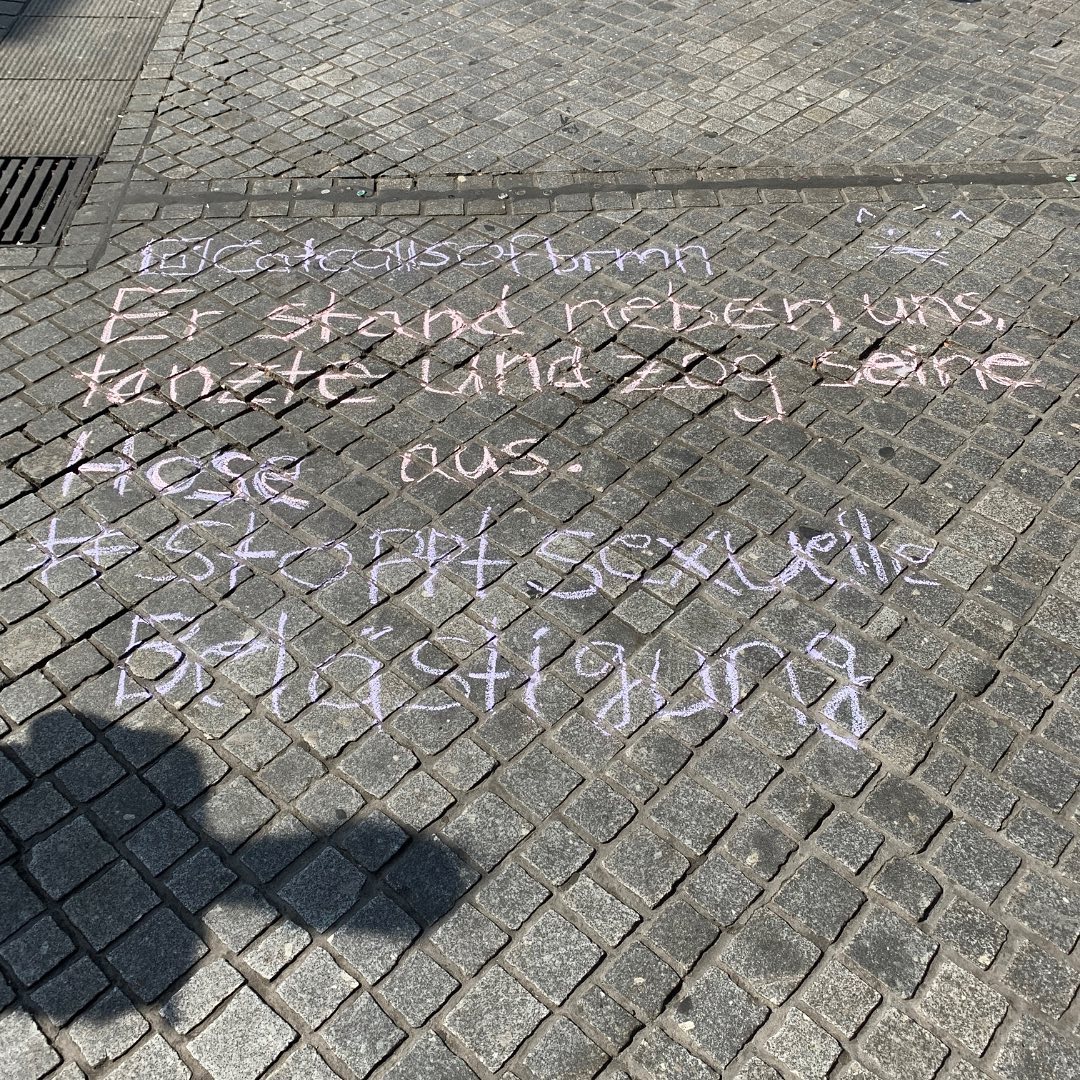 @catcallsofbrmn
Er stand neben uns,
tanzte und zog seine
Hose aus.
#stoppt sexuelle
Belästigung